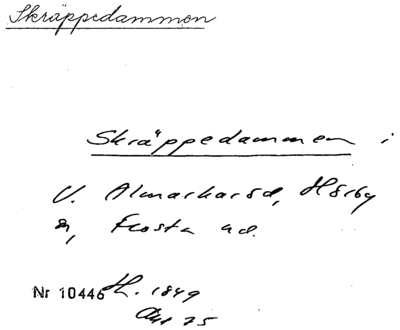 Skräppedammen
Skräppedammen i
V. Almarharöd, Hörby
sn, Frosta hd.
Nr 10446 H. 1849
Akt 75